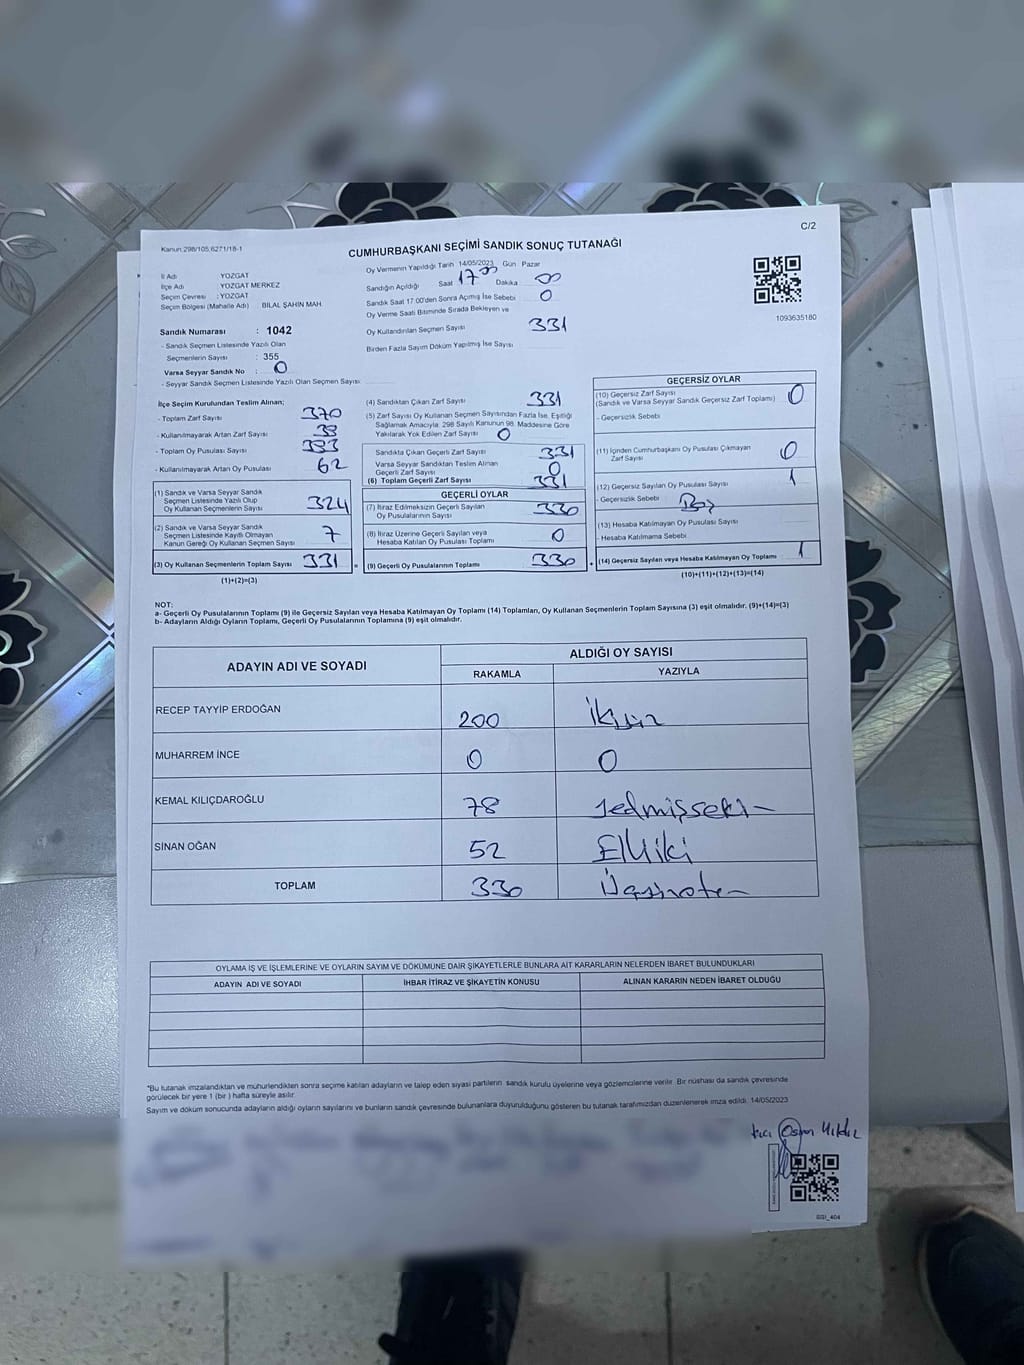 C/2
Kanun:298/105;6271/18-1
CUMHURBAŞKANI SEÇİMİ SANDIK SONUÇ TUTANAĞI
İl Adı YOZGAT
İlçe Adı YOZGAT MERKEZ
Seçim Çevresi : YOZGAT
Seçim Bölgesi (Mahalle Adı) BİLAL ŞAHİN MAH
Oy Vermenin Yapıldığı Tarih 14/05/2023 Gün Pazar
Sandığın Açıldığı Saat 17 00 Dakika 00
Sandık Saat 17:00'den Sonra Açılmış İse Sebebi 0
Oy Verme Saati Bitiminde Sırada Bekleyen ve
Oy Kullandırılan Seçmen Sayısı 331
Birden Fazla Sayım Döküm Yapılmış İse Sayısı
1093635180
Sandık Numarası : 1042
- Sandık Seçmen Listesinde Yazılı Olan
Seçmenlerin Sayısı : 355
Varsa Seyyar Sandık No : 0
- Seyyar Sandık Seçmen Listesinde Yazılı Olan Seçmen Sayısı:
İlçe Seçim Kurulundan Teslim Alınan;
- Toplam Zarf Sayısı 370
- Kullanılmayarak Artan Zarf Sayısı 39
- Toplam Oy Pusulası Sayısı 393
- Kullanılmayarak Artan Oy Pusulası 62
(1) Sandık ve Varsa Seyyar Sandık
Seçmen Listesinde Yazılı Olup
Oy Kullanan Seçmenlerin Sayısı 324
(2) Sandık ve Varsa Seyyar Sandık
Seçmen Listesinde Kayıtlı Olmayan
Kanun Gereği Oy Kullanan Seçmen Sayısı 7
(3) Oy Kullanan Seçmenlerin Toplam Sayısı 331
(1)+(2)=(3)
(4) Sandıktan Çıkan Zarf Sayısı 331
(5) Zarf Sayısı Oy Kullanan Seçmen Sayısından Fazla İse, Eşitliği
Sağlamak Amacıyla, 298 Sayılı Kanunun 98. Maddesine Göre
Yakılarak Yok Edilen Zarf Sayısı 0
Sandıkta Çıkan Geçerli Zarf Sayısı 331
Varsa Seyyar Sandıktan Teslim Alınan
Geçerli Zarf Sayısı 0
(6) Toplam Geçerli Zarf Sayısı 331
GEÇERLİ OYLAR
(7) İtiraz Edilmeksizin Geçerli Sayılan
Oy Pusulalarının Sayısı 330
(8) İtiraz Üzerine Geçerli Sayılan veya
Hesaba Katılan Oy Pusulası Toplamı 0
= (9) Geçerli Oy Pusulalarının Toplamı 330
GEÇERSİZ OYLAR
(10) Geçersiz Zarf Sayısı
(Sandık ve Varsa Seyyar Sandık Geçersiz Zarf Toplamı) 0
- Geçersizlik Sebebi
(11) İçinden Cumhurbaşkanı Oy Pusulası Çıkmayan
Zarf Sayısı 0
(12) Geçersiz Sayılan Oy Pusulası Sayısı 1
- Geçersizlik Sebebi Boş
(13) Hesaba Katılmayan Oy Pusulası Sayısı
- Hesaba Katılmama Sebebi
+ (14) Geçersiz Sayılan veya Hesaba Katılmayan Oy Toplamı 1
(10)+(11)+(12)+(13)=(14)
NOT:
a- Geçerli Oy Pusulalarının Toplamı (9) ile Geçersiz Sayılan veya Hesaba Katılmayan Oy Toplamı (14) Toplamları, Oy Kullanan Seçmenlerin Toplam Sayısına (3) eşit olmalıdır. (9)+(14)=(3)
b- Adayların Aldığı Oyların Toplamı, Geçerli Oy Pusulalarının Toplamına (9) eşit olmalıdır.
ADAYIN ADI VE SOYADI ALDIĞI OY SAYISI
RAKAMLA YAZIYLA
RECEP TAYYİP ERDOĞAN 200 ikiyüz
MUHARREM İNCE 0 0
KEMAL KILIÇDAROĞLU 78
SİNAN OĞAN 52 Elliiki
TOPLAM 330
OYLAMA İŞ VE İŞLEMLERİNE VE OYLARIN SAYIM VE DÖKÜMÜNE DAİR ŞİKAYETLERLE BUNLARA AİT KARARLARIN NELERDEN İBARET BULUNDUKLARI
ADAYIN ADI VE SOYADI İHBAR İTİRAZ VE ŞİKAYETİN KONUSU ALINAN KARARIN NEDEN İBARET OLDUĞU
*Bu tutanak imzalandıktan ve mühürlendikten sonra seçime katılan adayların ve talep eden siyasi partilerin sandık kurulu üyelerine veya gözlemcilerine verilir. Bir nüshası da sandık çevresinde
görülecek bir yere 1 (bir) hafta süreyle asılır.
Sayım ve döküm sonucunda adayların aldığı oyların sayılarını ve bunların sandık çevresinde bulunanlara duyurulduğunu gösteren bu tutanak tarafımızdan düzenlenerek imza edildi. 14/05/2023
Osman Yıldız